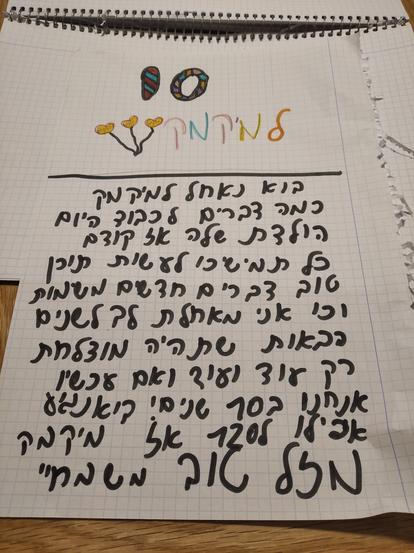 10
למיקמק
בוא נאחל למיקמק
כמה דברים לכבוד היום
הולדת שלה אז קודם
כל תמשיכו לעשות תוכן
טוב דברים חדשים משימות
וכו אני מאחלת לב לשנים
הבאות שתהיה מוצלחת
רק עוד ועוד ואם עכשיו
אנחנו ב10 שנים
אפילו ל120 אז מיקמק
מזל טוב